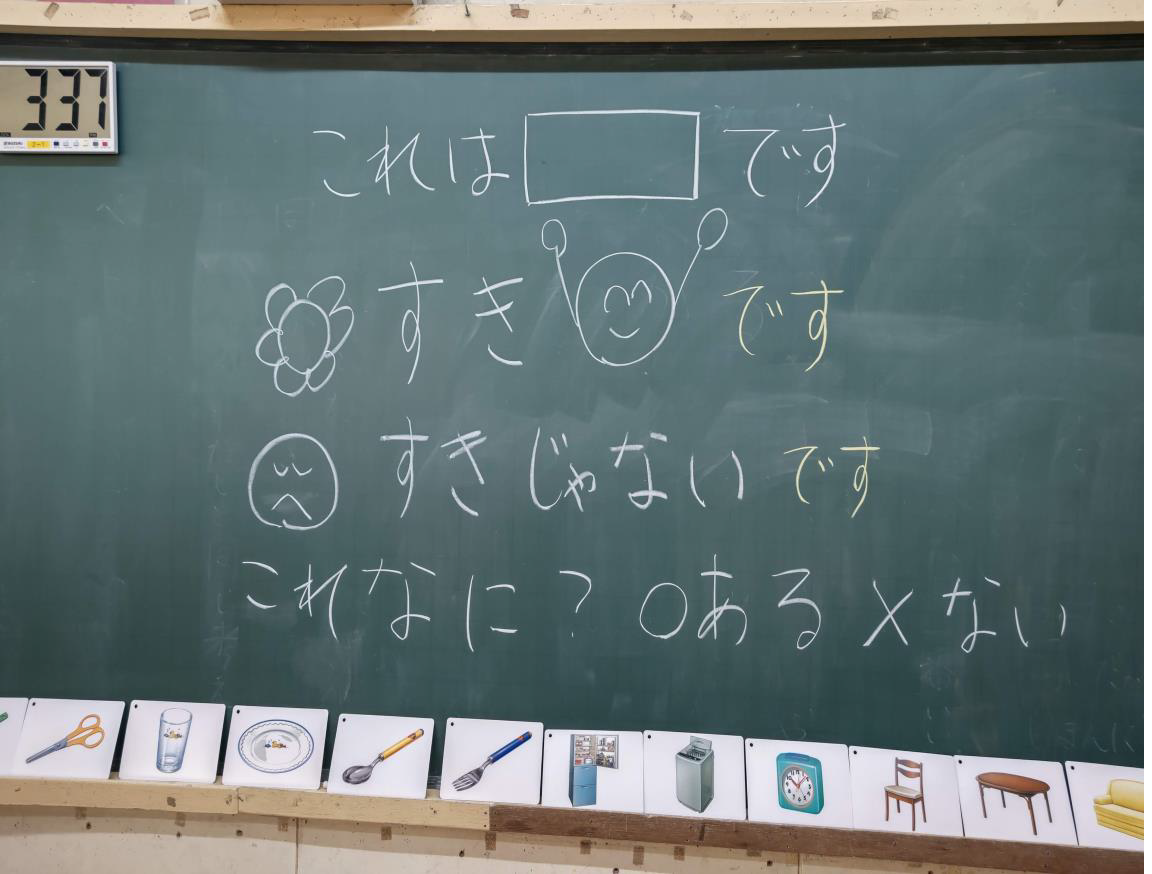 337
これは です
すき です
すきじゃないです
これなに？ ○ある ×ない